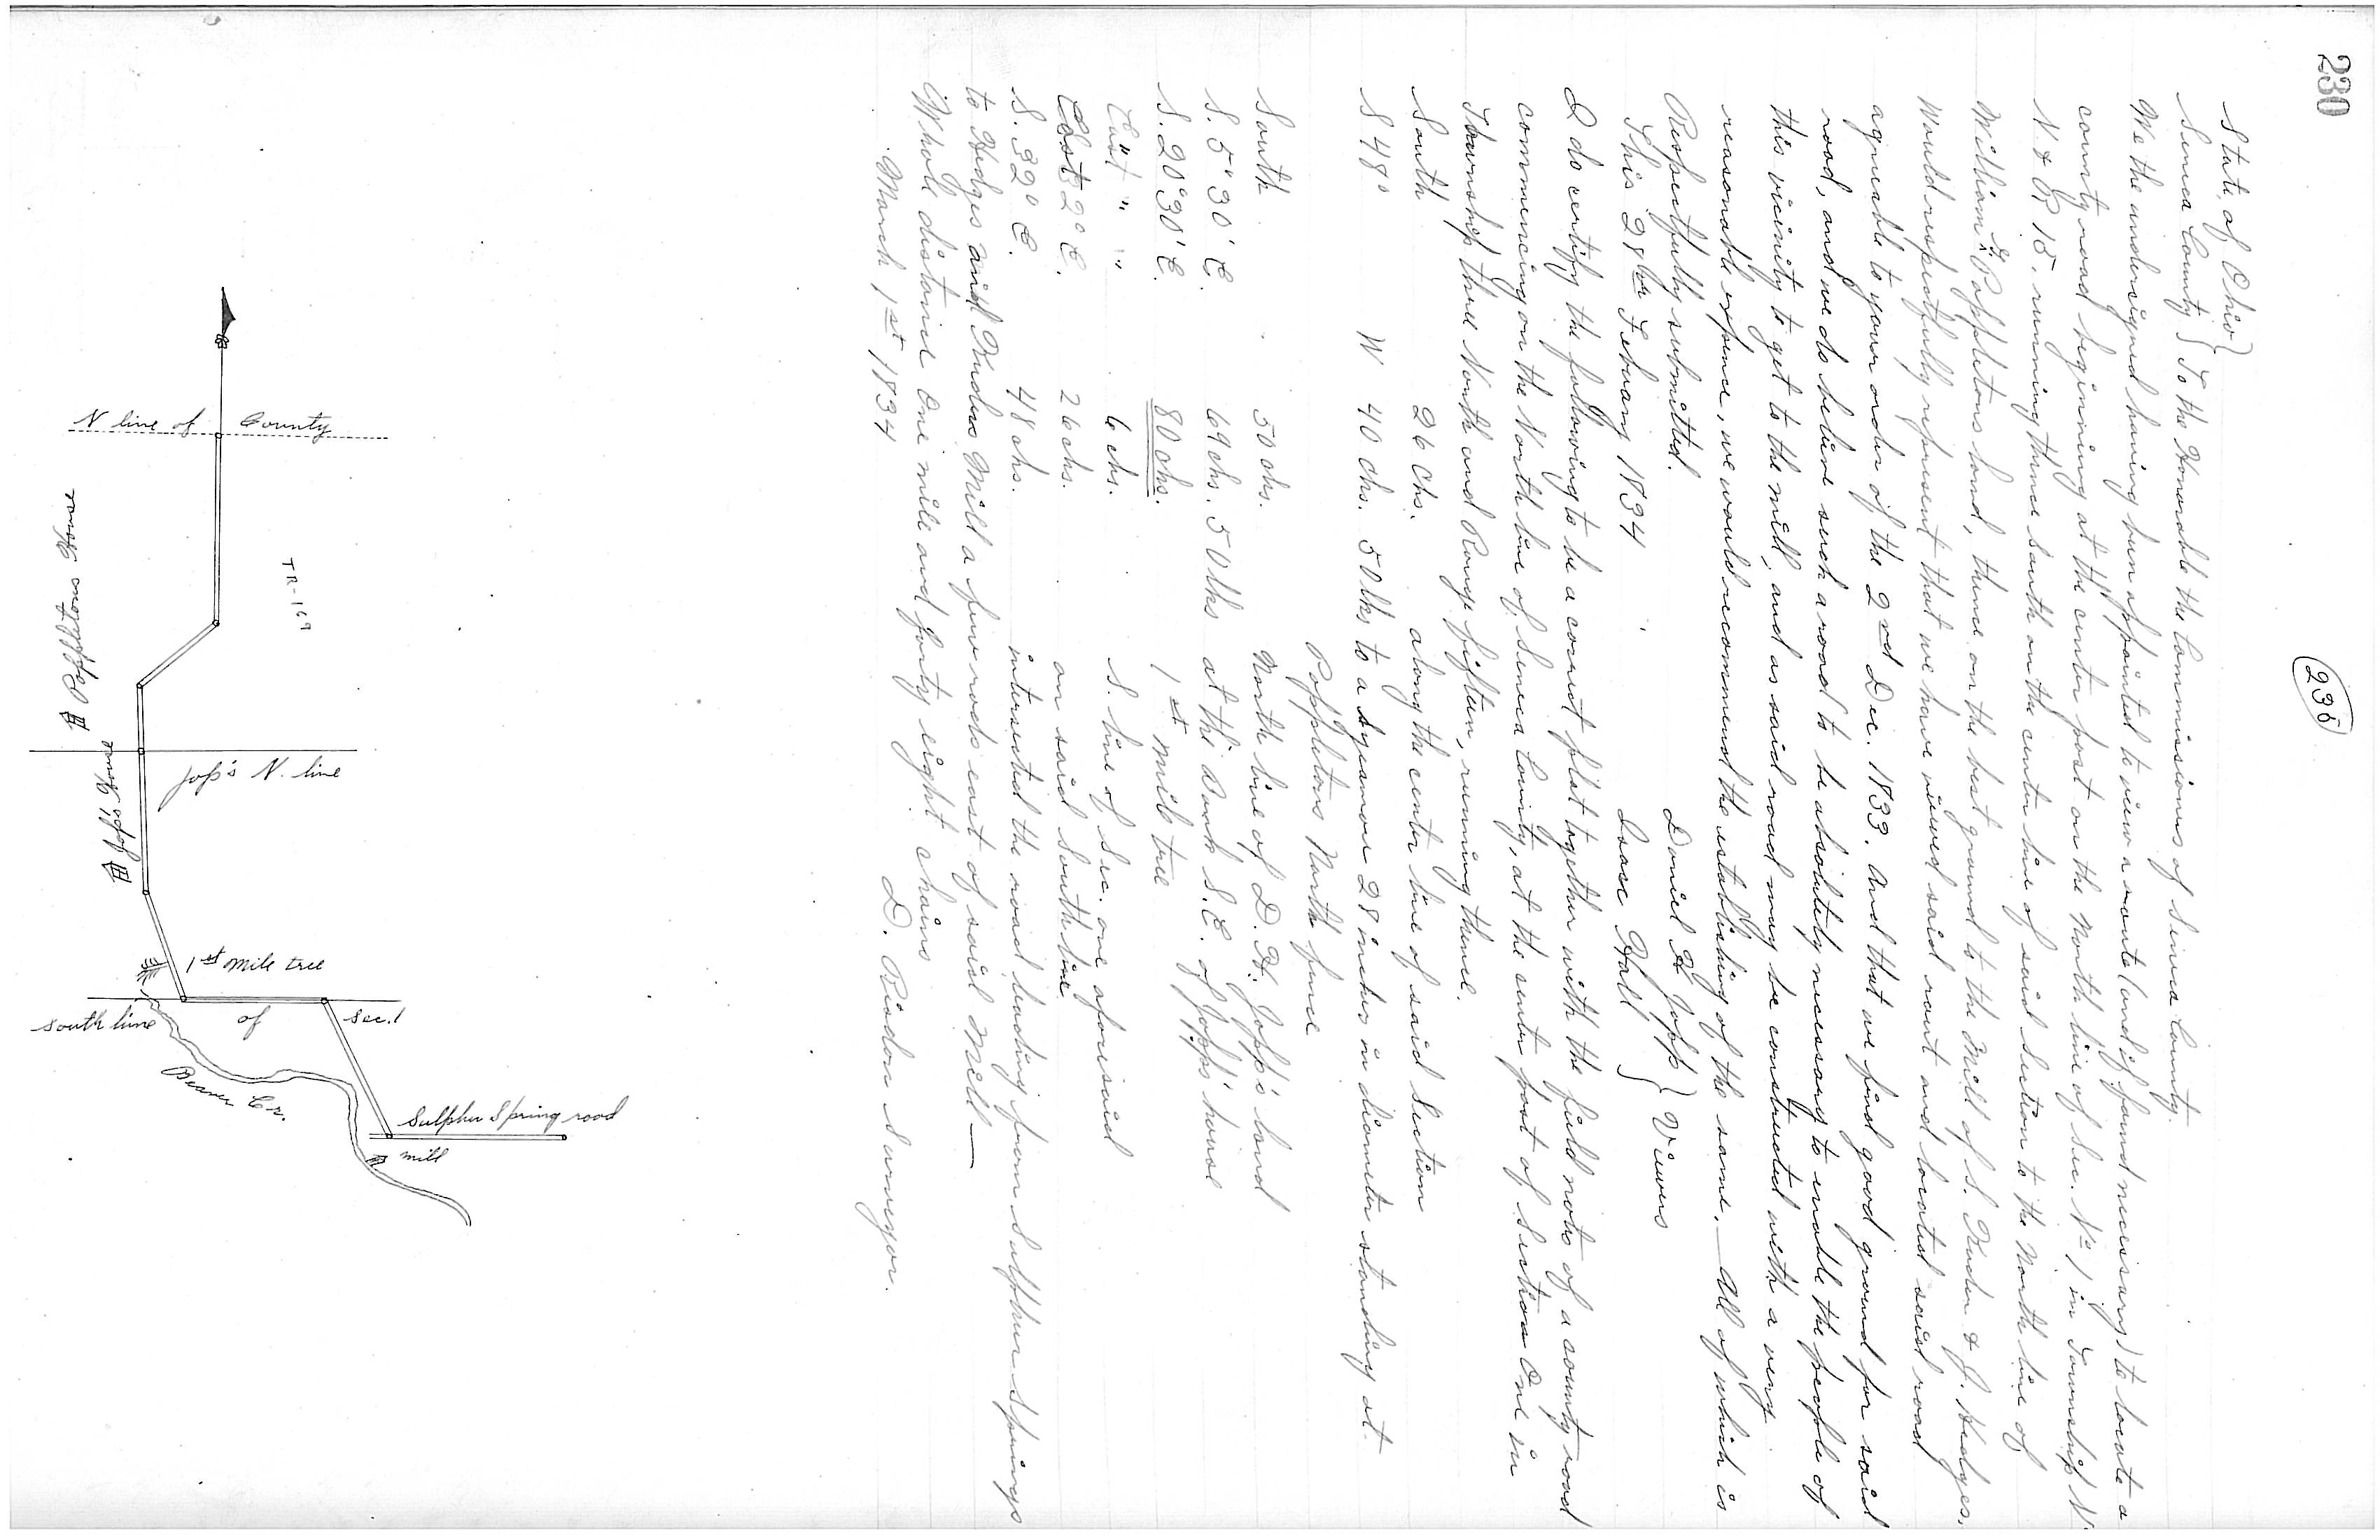 230
235
State of Ohio }
Seneca County } To the Honorable the Commissioners of Seneca County.
We the undersigned having been appointed to view a route (and if found necessary) to locate a
county road beginning at the center post on the North line of Sec. No 1 in Township No
N & R 15. running thence south on the center line of said Section to the North line of
William G. Poppletons land, thence on the best ground to the Mill of S. Kuder & J. Hedges.
Would respectfully represent that we have viewed said rout and located said road
agreeable to your order of the 2nd Dec. 1833. And that we find good ground for said
road, and we do believe such a road to be absolutely necessary to enable the people of
this vicinity to get to the mill, and as said road may be constructed with a very
reasonable expence, we would recommend the establishing of the same. — All of which is
Respectfully submitted.
This 28th Febuary 1834
Daniel H Jopp }
Isaac Hall } Viewers
I do certify the following to be a correct plat together with the field notes of a county road
commencing on the North line of Seneca County, at the center post of Section One in
Township three North and Range fifteen, running thence.
South 26 Chs. along the center line of said Section
S 48° W 40 chs. 50 lks to a Sycamore 28 inches in diameter standing at
Poppletons North fence
South 50 chs. North line of D. H. Jopp's land
S. 5° 30' E. 69 chs. 50 lks at the Bank S.E. of Jopps' house
S. 20° 30' E. 80 chs. 1st mile tree
East " " 6 chs. S. line of Sec. one aforesaid
East 2° E. 26 chs. on said South line
S. 32° E. 48 chs. intersected the road leading from Sulpher Springs
to Hedges and Kuders Mill a few rods east of said Mill —
Whole distance One mile and forty eight chains
March 1st 1834
D. Risdon Surveyor.
N line of County
TR-169
Poppletons House
Jop's N. line
Jop's House
1st Mile tree
South line of Sec. 1
Beaver Cr.
Sulpher Spring road
mill